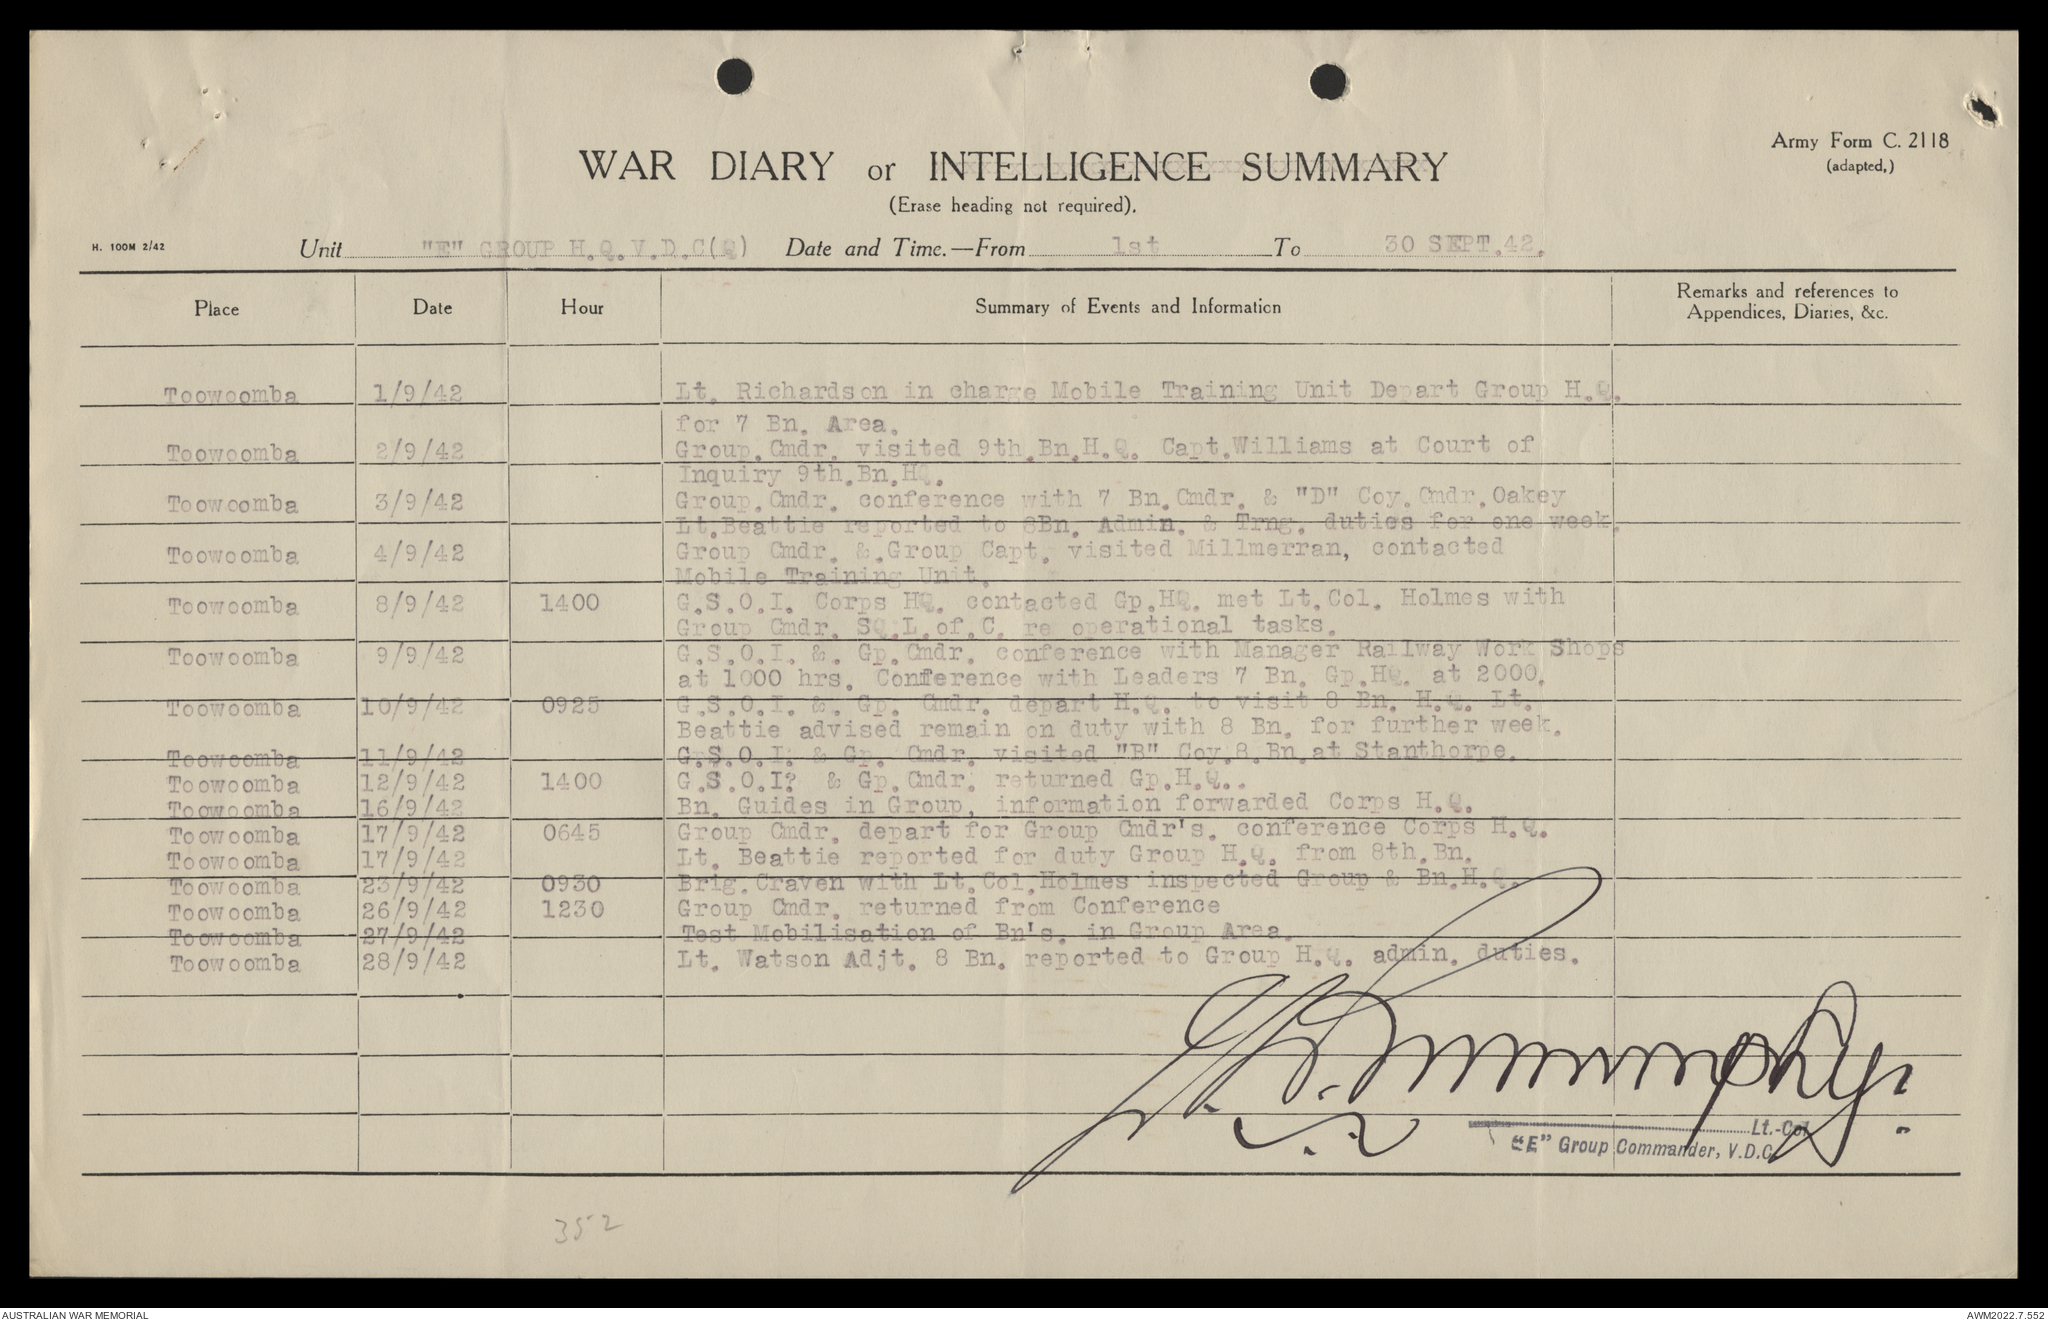 Army Form C. 2118
(adapted,)
WAR DIARY or INTELLIGENCE SUMMARY
(Erase heading not required).
H. 100M 2/42
Unit "E" GROUP H.Q.V.D.C(Q) Date and Time.—From 1st To 30 SEPT.42.
Place Date Hour Summary of Events and Information Remarks and references to
Appendices, Diaries, &c.
Toowoomba 1/9/42 Lt. Richardson in charge Mobile Training Unit Depart Group H.Q.
for 7 Bn. Area.
Toowoomba 2/9/42 Group.Cmdr. visited 9th.Bn.H.Q. Capt.Williams at Court of
Inquiry 9th.Bn.HQ.
Toowoomba 3/9/42 Group.Cmdr. conference with 7 Bn.Cmdr. & "D" Coy.Cmdr.Oakey
Lt.Beattie reported to 8Bn. Admin. & Trng. duties for one week.
Toowoomba 4/9/42 Group Cmdr. &.Group Capt. visited Millmerran, contacted
Mobile Training Unit.
Toowoomba 8/9/42 1400 G.S.O.I. Corps HQ. contacted Gp.HQ. met Lt.Col. Holmes with
Group Cmdr. SQ.L.of.C. re operational tasks.
Toowoomba 9/9/42 G.S.O.I. &. Gp.Cmdr. conference with Manager Railway Work Shops
at 1000 hrs. Conference with Leaders 7 Bn. Gp.HQ. at 2000.
Toowoomba 10/9/42 0925 G.S.O.I. &. Gp. Cmdr. depart H.Q. to visit 8 Bn. H.Q. Lt.
Beattie advised remain on duty with 8 Bn. for further week.
Toowoomba 11/9/42 G.S.O.I. & Gp. Cmdr. visited "B" Coy.8.Bn.at Stanthorpe.
Toowoomba 12/9/42 1400 G.S.O.I? & Gp.Cmdr. returned Gp.H.Q..
Toowoomba 16/9/42 Bn. Guides in Group, information forwarded Corps H.Q.
Toowoomba 17/9/42 0645 Group Cmdr. depart for Group Cmdr's. conference Corps H.Q.
Toowoomba 17/9/42 Lt. Beattie reported for duty Group H.Q. from 8th.Bn.
Toowoomba 23/9/42 0930 Brig.Craven with Lt.Col.Holmes inspected Group & Bn.H.Q.
Toowoomba 26/9/42 1230 Group Cmdr. returned from Conference
Toowoomba 27/9/42 Test Mobilisation of Bn's. in Group Area.
Toowoomba 28/9/42 Lt. Watson Adjt. 8 Bn. reported to Group H.Q. admin. duties.
Lt.-Col
"E" Group Commander, V.D.C.
352
AUSTRALIAN WAR MEMORIAL
AWM2022.7.552